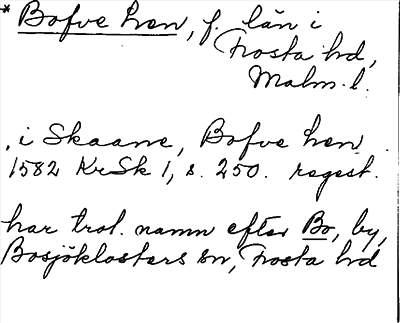 * Bofve len, f. län i
Frosta hd,
Malm. l.
i Skaane, Bofve len
1582 KrSk 1, s. 250. regest.
har trol. namn efter Bo, by,
Bosjöklosters sn, Frosta hd